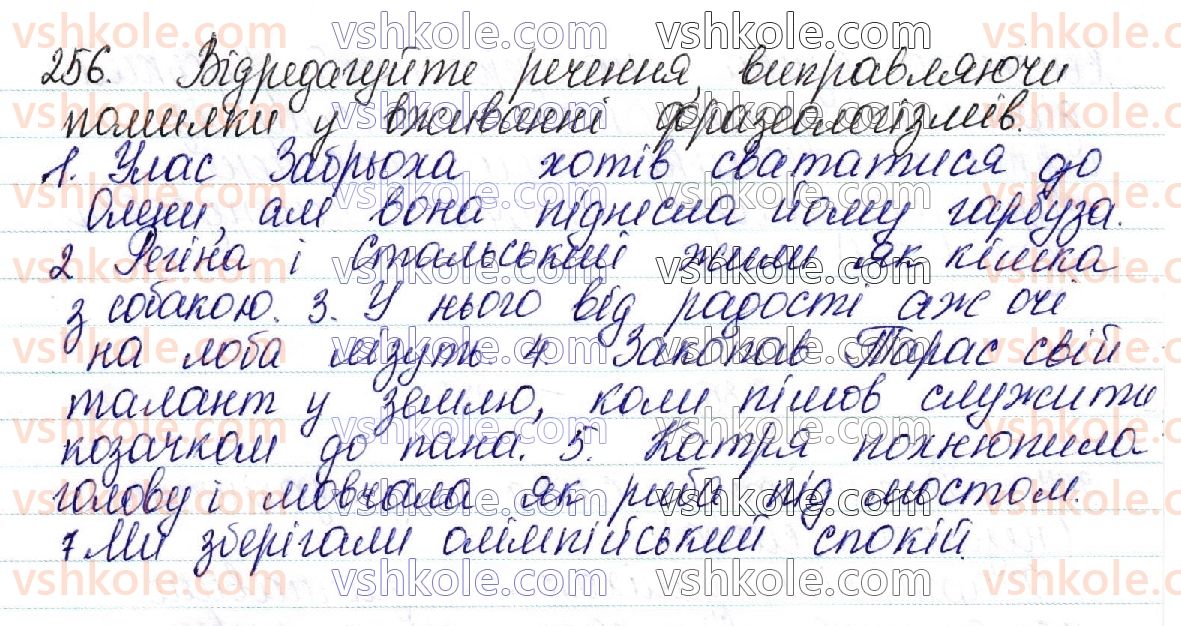 256. Відредагуйте речення, виправляючи
помилки у вживанні фразеологізмів.
1. Улас Забрьоха хотів сватотися до
Олени, але вона піднесла йому гарбуза.
2 Регіна і Стальський жили як кішка
з собакою. 3. У нього від радості аж очі
на лоба лізуть. 4 Закопав Тарас свій
талант у землю, коли пішов служити
козачком до пана. 5. Катря похнюпила
голову і мовчала як риба під мостом.
7 Ми зберігали олімпійський спокій.